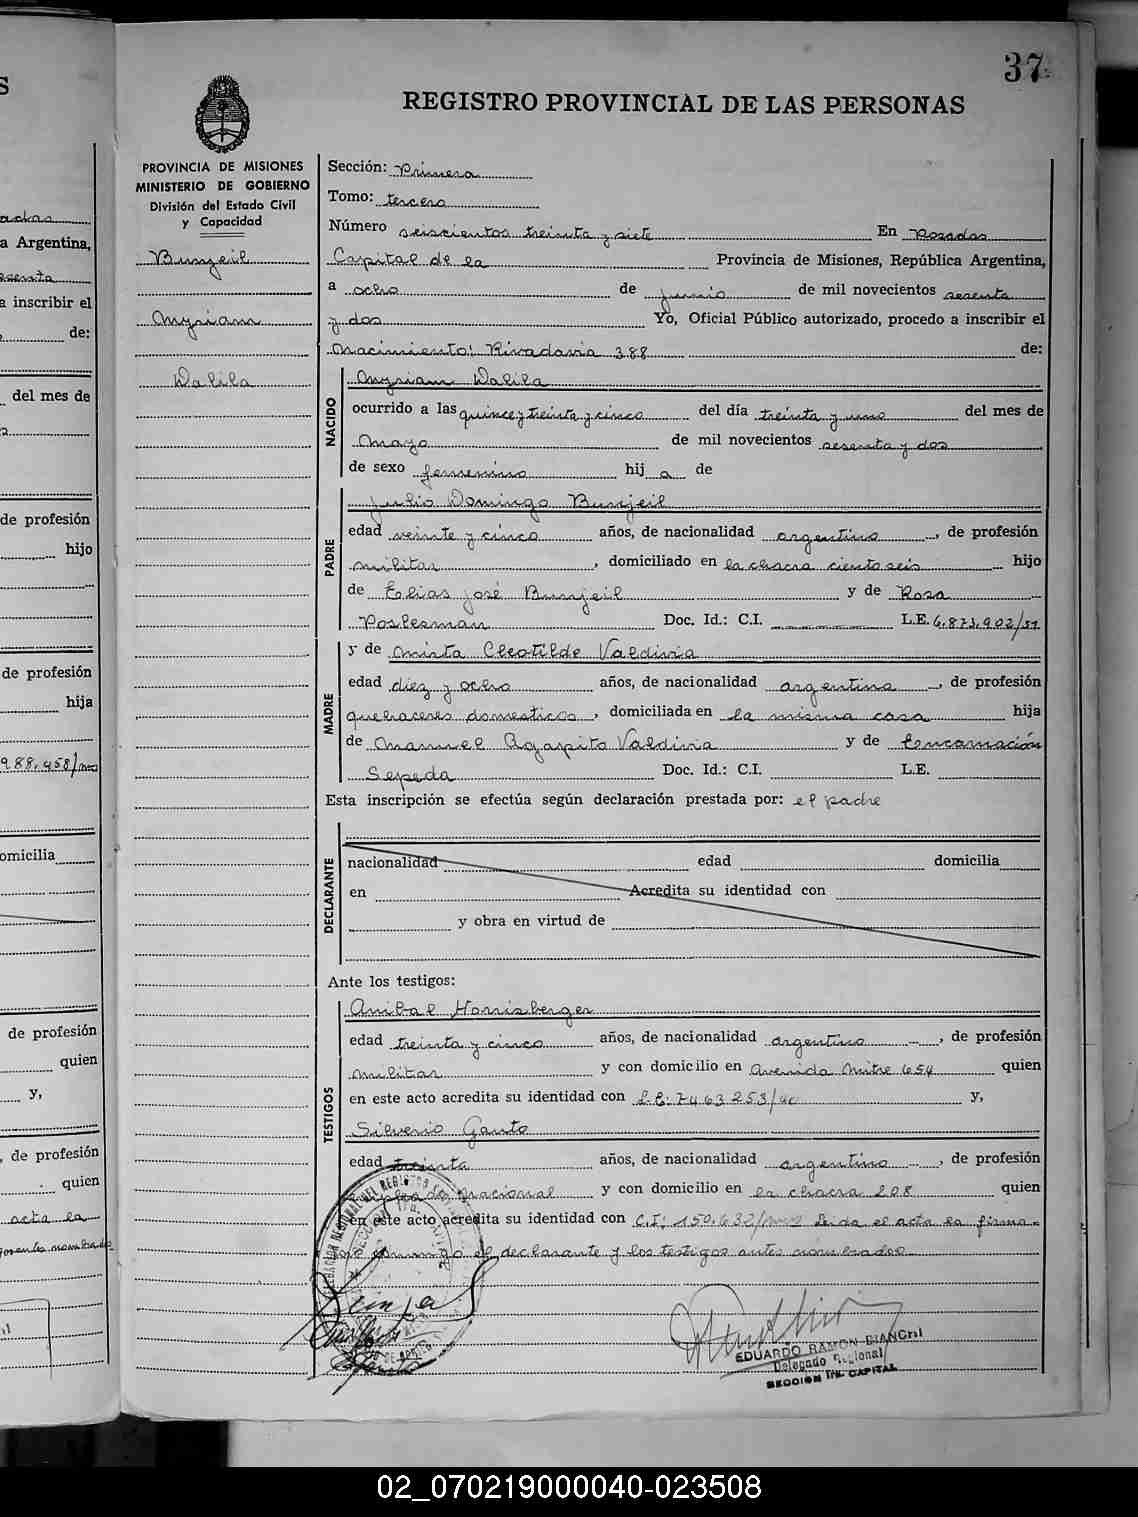 37
REGISTRO PROVINCIAL DE LAS PERSONAS
PROVINCIA DE MISIONES
MINISTERIO DE GOBIERNO
División del Estado Civil
y Capacidad
Bunjeil
Myriam
Dalila
Sección: Primera
Tomo: tercero
Número seiscientos treinta y siete En Posadas
Capital de la Provincia de Misiones, República Argentina,
a ocho de junio de mil novecientos sesenta
y dos Yo, Oficial Público autorizado, procedo a inscribir el
Nacimiento: Rivadavia 388 de:
NACIDO
Myriam Dalila
ocurrido a las quince y treinta y cinco del día treinta y uno del mes de
Mayo de mil novecientos sesenta y dos
de sexo femenino hij a de
PADRE
Julio Domingo Bunjeil
edad veinte y cinco años, de nacionalidad argentino, de profesión
militar, domiciliado en la chacra ciento seis hijo
de Elias José Bunjeil y de Rosa
Poslesman Doc. Id.: C.I. L.E. 6.873.902/51
MADRE
y de Mirta Cleotilde Valdivia
edad diez y ocho años, de nacionalidad argentina, de profesión
quehaceres domesticos, domiciliada en la misma casa hija
de Manuel Agapito Valdivia y de Encarnación
Sepeda Doc. Id.: C.I. L.E.
Esta inscripción se efectúa según declaración prestada por: el padre
DECLARANTE
nacionalidad edad domicilia
en Acredita su identidad con
y obra en virtud de
Ante los testigos:
TESTIGOS
Anibal Horrisberger
edad treinta y cinco años, de nacionalidad argentino, de profesión
militar y con domicilio en Avenida Mitre 654 quien
en este acto acredita su identidad con L.E: 7463253/40 y,
Silverio Gauto
edad treinta años, de nacionalidad argentino, de profesión
Nacional y con domicilio en la chacra 208 quien
en este acto acredita su identidad con C.I: 150.632/ Leida el acta la firma
conmigo el declarante y los testigos antes nombrados
EDUARDO RAMON BIANCHI
Delegado Regional
SECCION 1ra. CAPITAL
a Argentina,
a inscribir el
de:
del mes de
de profesión
hijo
de profesión
hija
988.458/
omicilia
de profesión
quien
y,
, de profesión
quien
acta la
nombrados
02_070219000040-023508